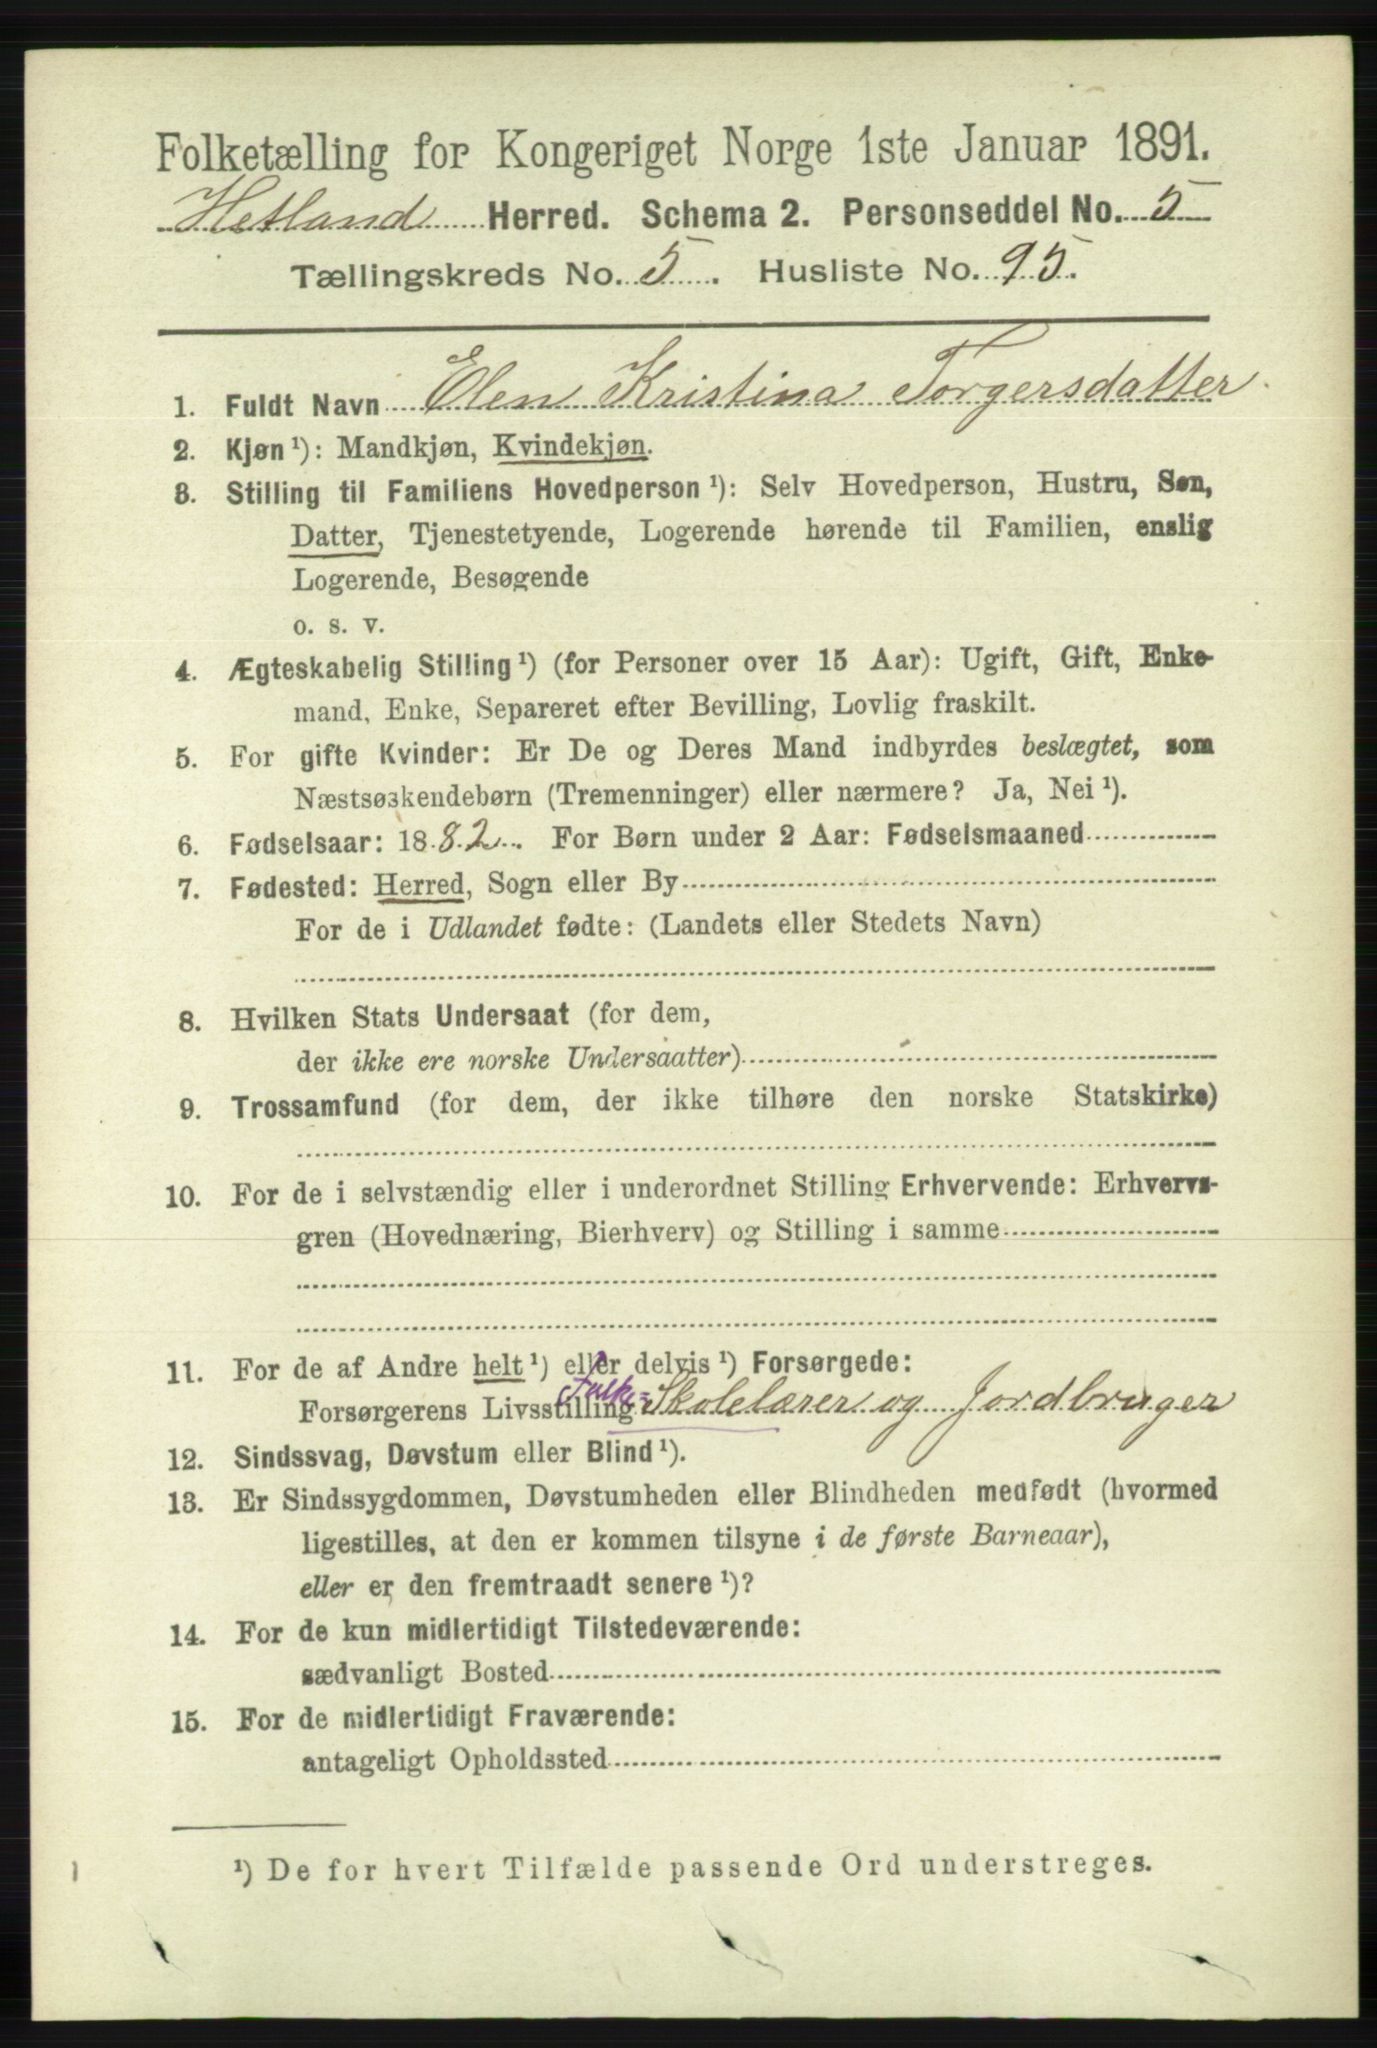 Folketælling for Kongeriget Norge 1ste Januar 1891.
Hetland Herred. Schema 2. Personseddel No. 5
Tællingskreds No. 5. Husliste No. 95.
1. Fuldt Navn Elen Kristina Torgersdatter.
2. Kjøn ¹): Mandkjøn, Kvindekjøn.
3. Stilling til Familiens Hovedperson ¹): Selv Hovedperson, Hustru, Søn,
Datter, Tjenestetyende, Logerende hørende til Familien, enslig
Logerende, Besøgende
o. s. v.
4. Ægteskabelig Stilling ¹) (for Personer over 15 Aar): Ugift, Gift, Enke-
mand, Enke, Separeret efter Bevilling, Lovlig fraskilt.
5. For gifte Kvinder: Er De og Deres Mand indbyrdes beslægtet, som
Næstsøskendebørn (Tremenninger) eller nærmere? Ja, Nei ¹).
6. Fødselsaar: 1882. For Børn under 2 Aar: Fødselsmaaned
7. Fødested: Herred, Sogn eller By
For de i Udlandet fødte: (Landets eller Stedets Navn)
8. Hvilken Stats Undersaat (for dem,
der ikke ere norske Undersaatter)
9. Trossamfund (for dem, der ikke tilhøre den norske Statskirke)
10. For de i selvstændig eller i underordnet Stilling Erhvervende: Erhvervs-
gren (Hovednæring, Bierhverv) og Stilling i samme
11. For de af Andre helt ¹) eller delvis ¹) Forsørgede:
Forsørgerens Livsstilling Folke= Skolelærer og Jordbruger
12. Sindssvag, Døvstum eller Blind ¹).
13. Er Sindssygdommen, Døvstumheden eller Blindheden medfødt (hvormed
ligestilles, at den er kommen tilsyne i de første Barneaar),
eller er den fremtraadt senere ¹)?
14. For de kun midlertidigt Tilstedeværende:
sædvanligt Bosted
15. For de midlertidigt Fraværende:
antageligt Opholdssted
¹) De for hvert Tilfælde passende Ord understreges.